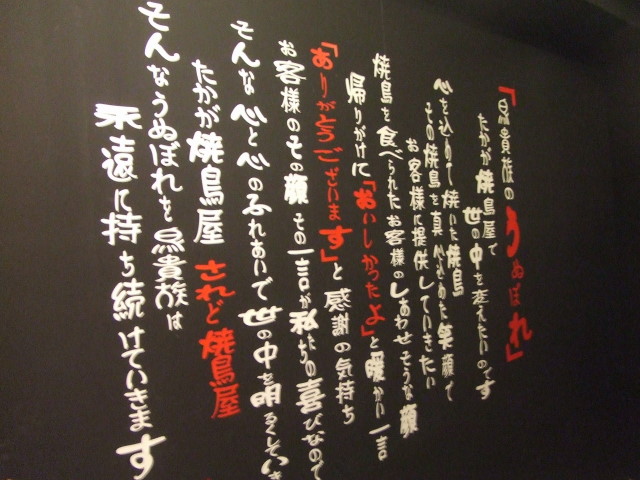 「鳥貴族のうぬぼれ」
たかが焼鳥屋で
世の中を変えたいのです
心を込めて焼いた焼鳥
その焼鳥を真心込めた笑顔で
お客様に提供していきたい
焼鳥を食べられたお客様のしあわせそうな顔
帰りがけに「おいしかったよ」と暖かい一言
「ありがとうございます」と感謝の気持ち
お客様のその顔その一言が私たちの喜びなので
そんな心と心のふれあいで世の中を明るくしていき
たかが焼鳥屋されど焼鳥屋
そんなうぬぼれを鳥貴族は
永遠に持ち続けていきます